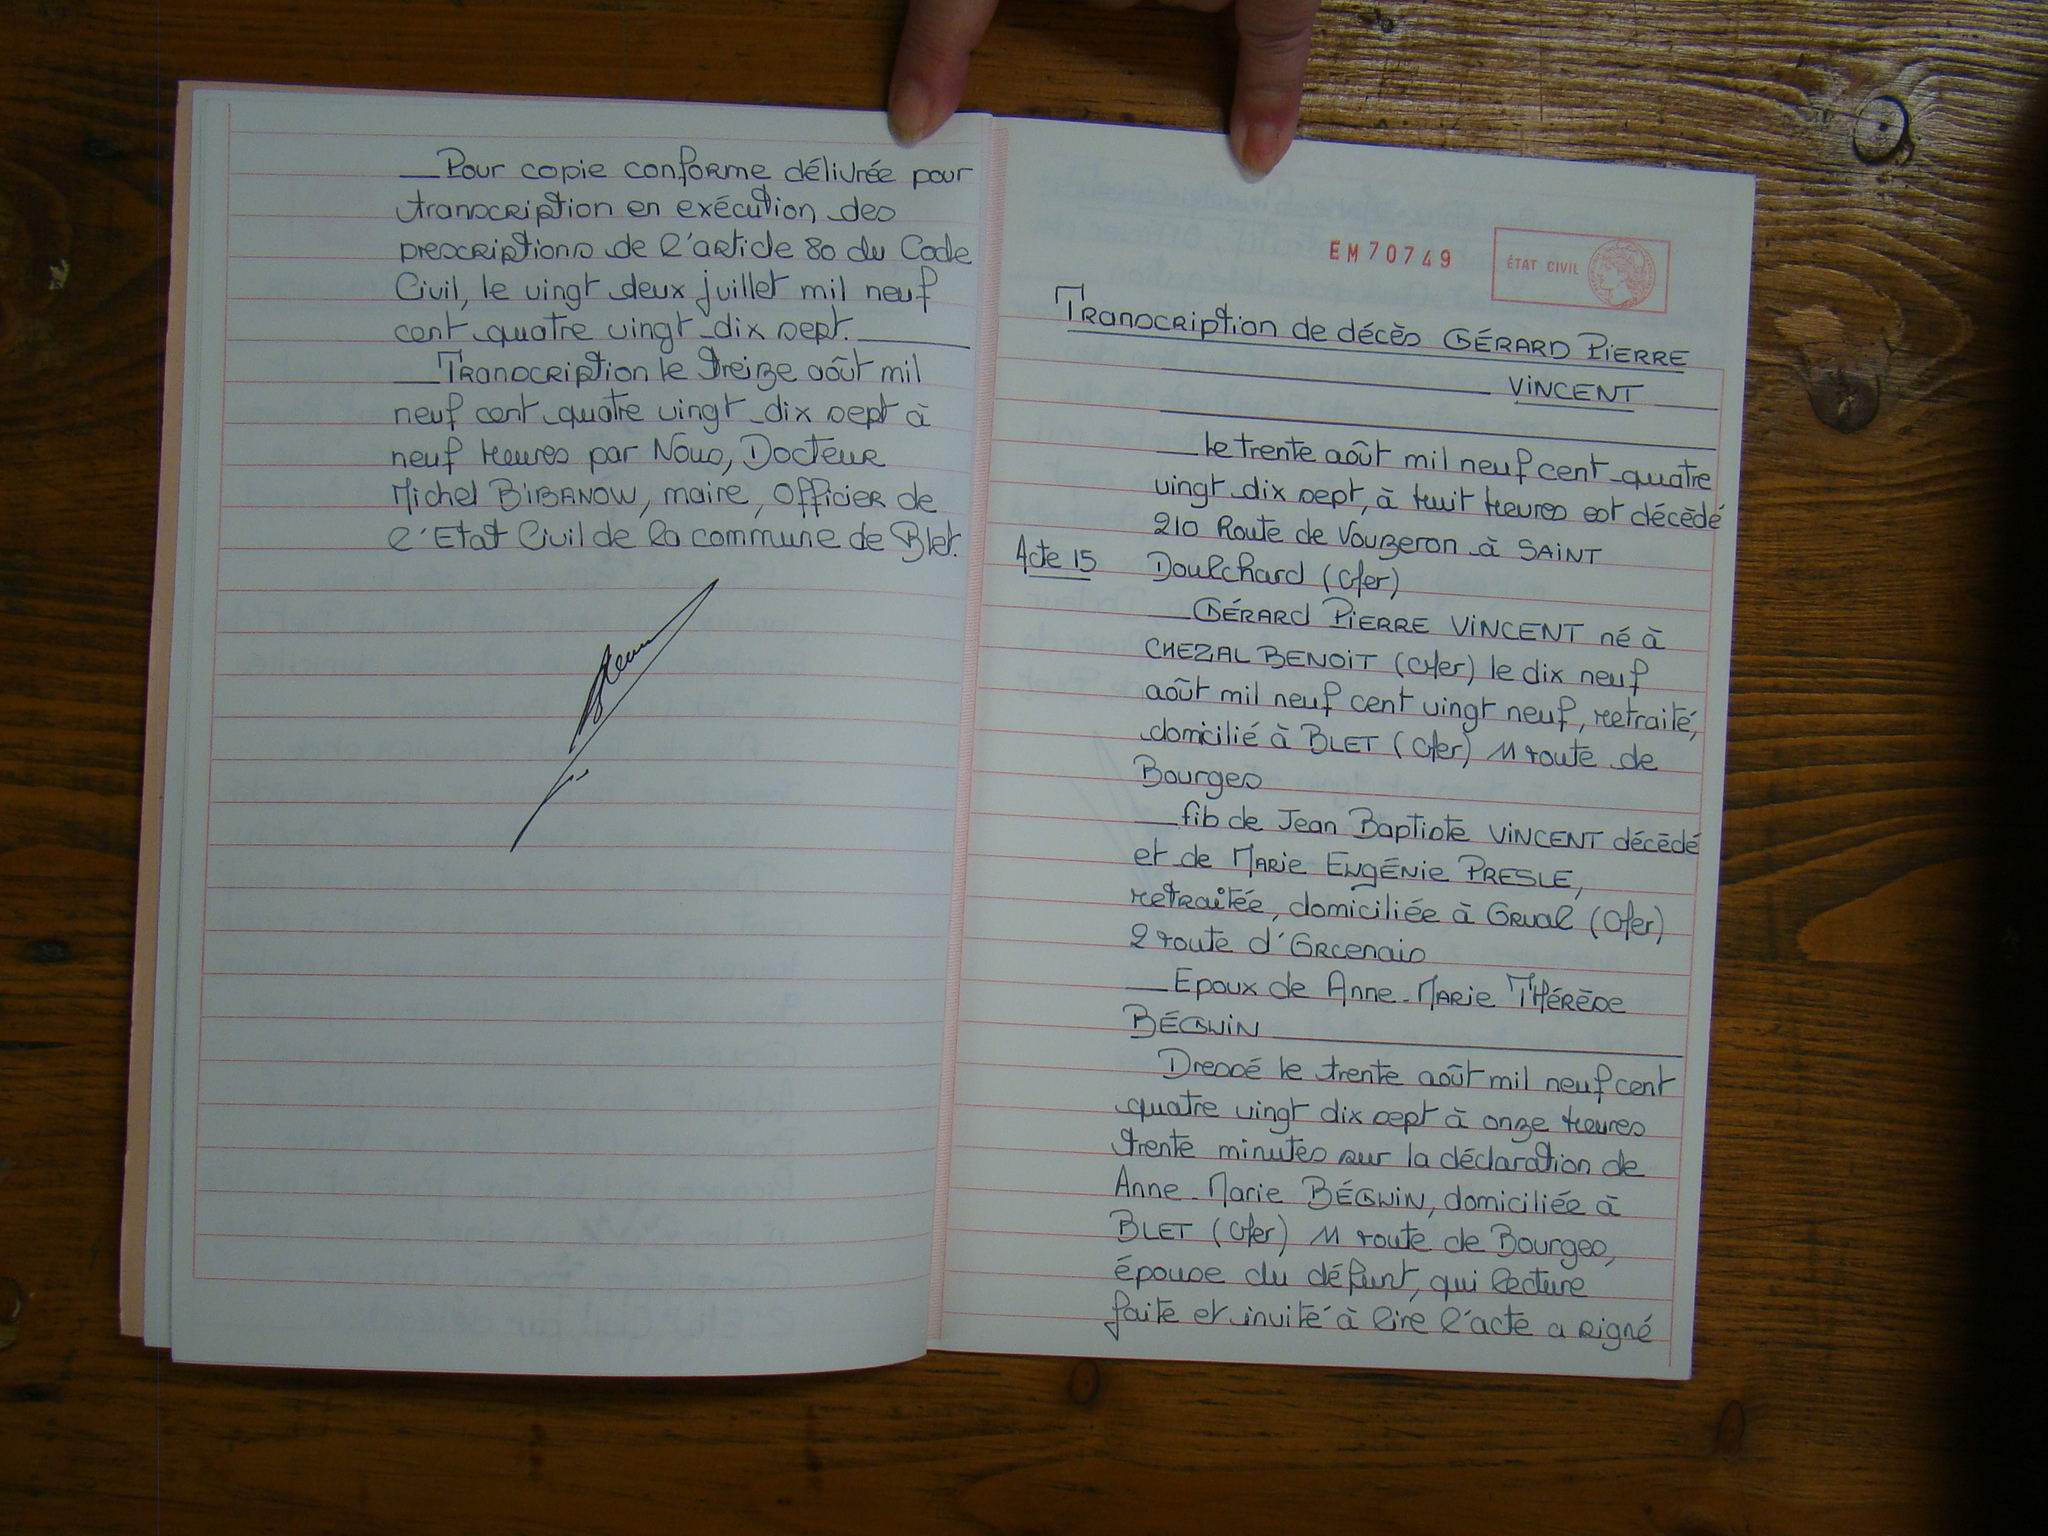 Pour copie conforme délivrée pour
transcription en exécution des
prescriptions de l'article 80 du Code
Civil, le vingt deux juillet mil neuf
cent quatre vingt dix sept.
Transcription le treize août mil
neuf cent quatre vingt dix sept à
neuf heures par Nous, Docteur
Michel BIBANOW, maire, officier de
l'Etat Civil de la commune de Blet.
EM70749
ÉTAT CIVIL
Transcription de décès GÉRARD PIERRE
VINCENT
le trente août mil neuf cent quatre
vingt dix sept, à huit heures est décédé
210 Route de Vouzeron à SAINT
Acte 15
Doulchard (Cher)
GÉRARD PIERRE VINCENT né à
CHEZAL BENOIT (Cher) le dix neuf
août mil neuf cent vingt neuf, retraité,
domicilié à BLET (Cher) 11 route de
Bourges
fils de Jean Baptiste VINCENT décédé
et de MARIE EUGÉNIE PRESLE,
retraitée, domiciliée à Orval (Cher)
2 route d'Orcenais
Epoux de Anne-MARIE THÉRÈSE
BÉGUIN
Dressé le trente août mil neuf cent
quatre vingt dix sept à onze heures
trente minutes sur la déclaration de
Anne-Marie BÉGUIN, domiciliée à
BLET (Cher) 11 route de Bourges,
épouse du défunt, qui lecture
faite et invité à lire l'acte a signé